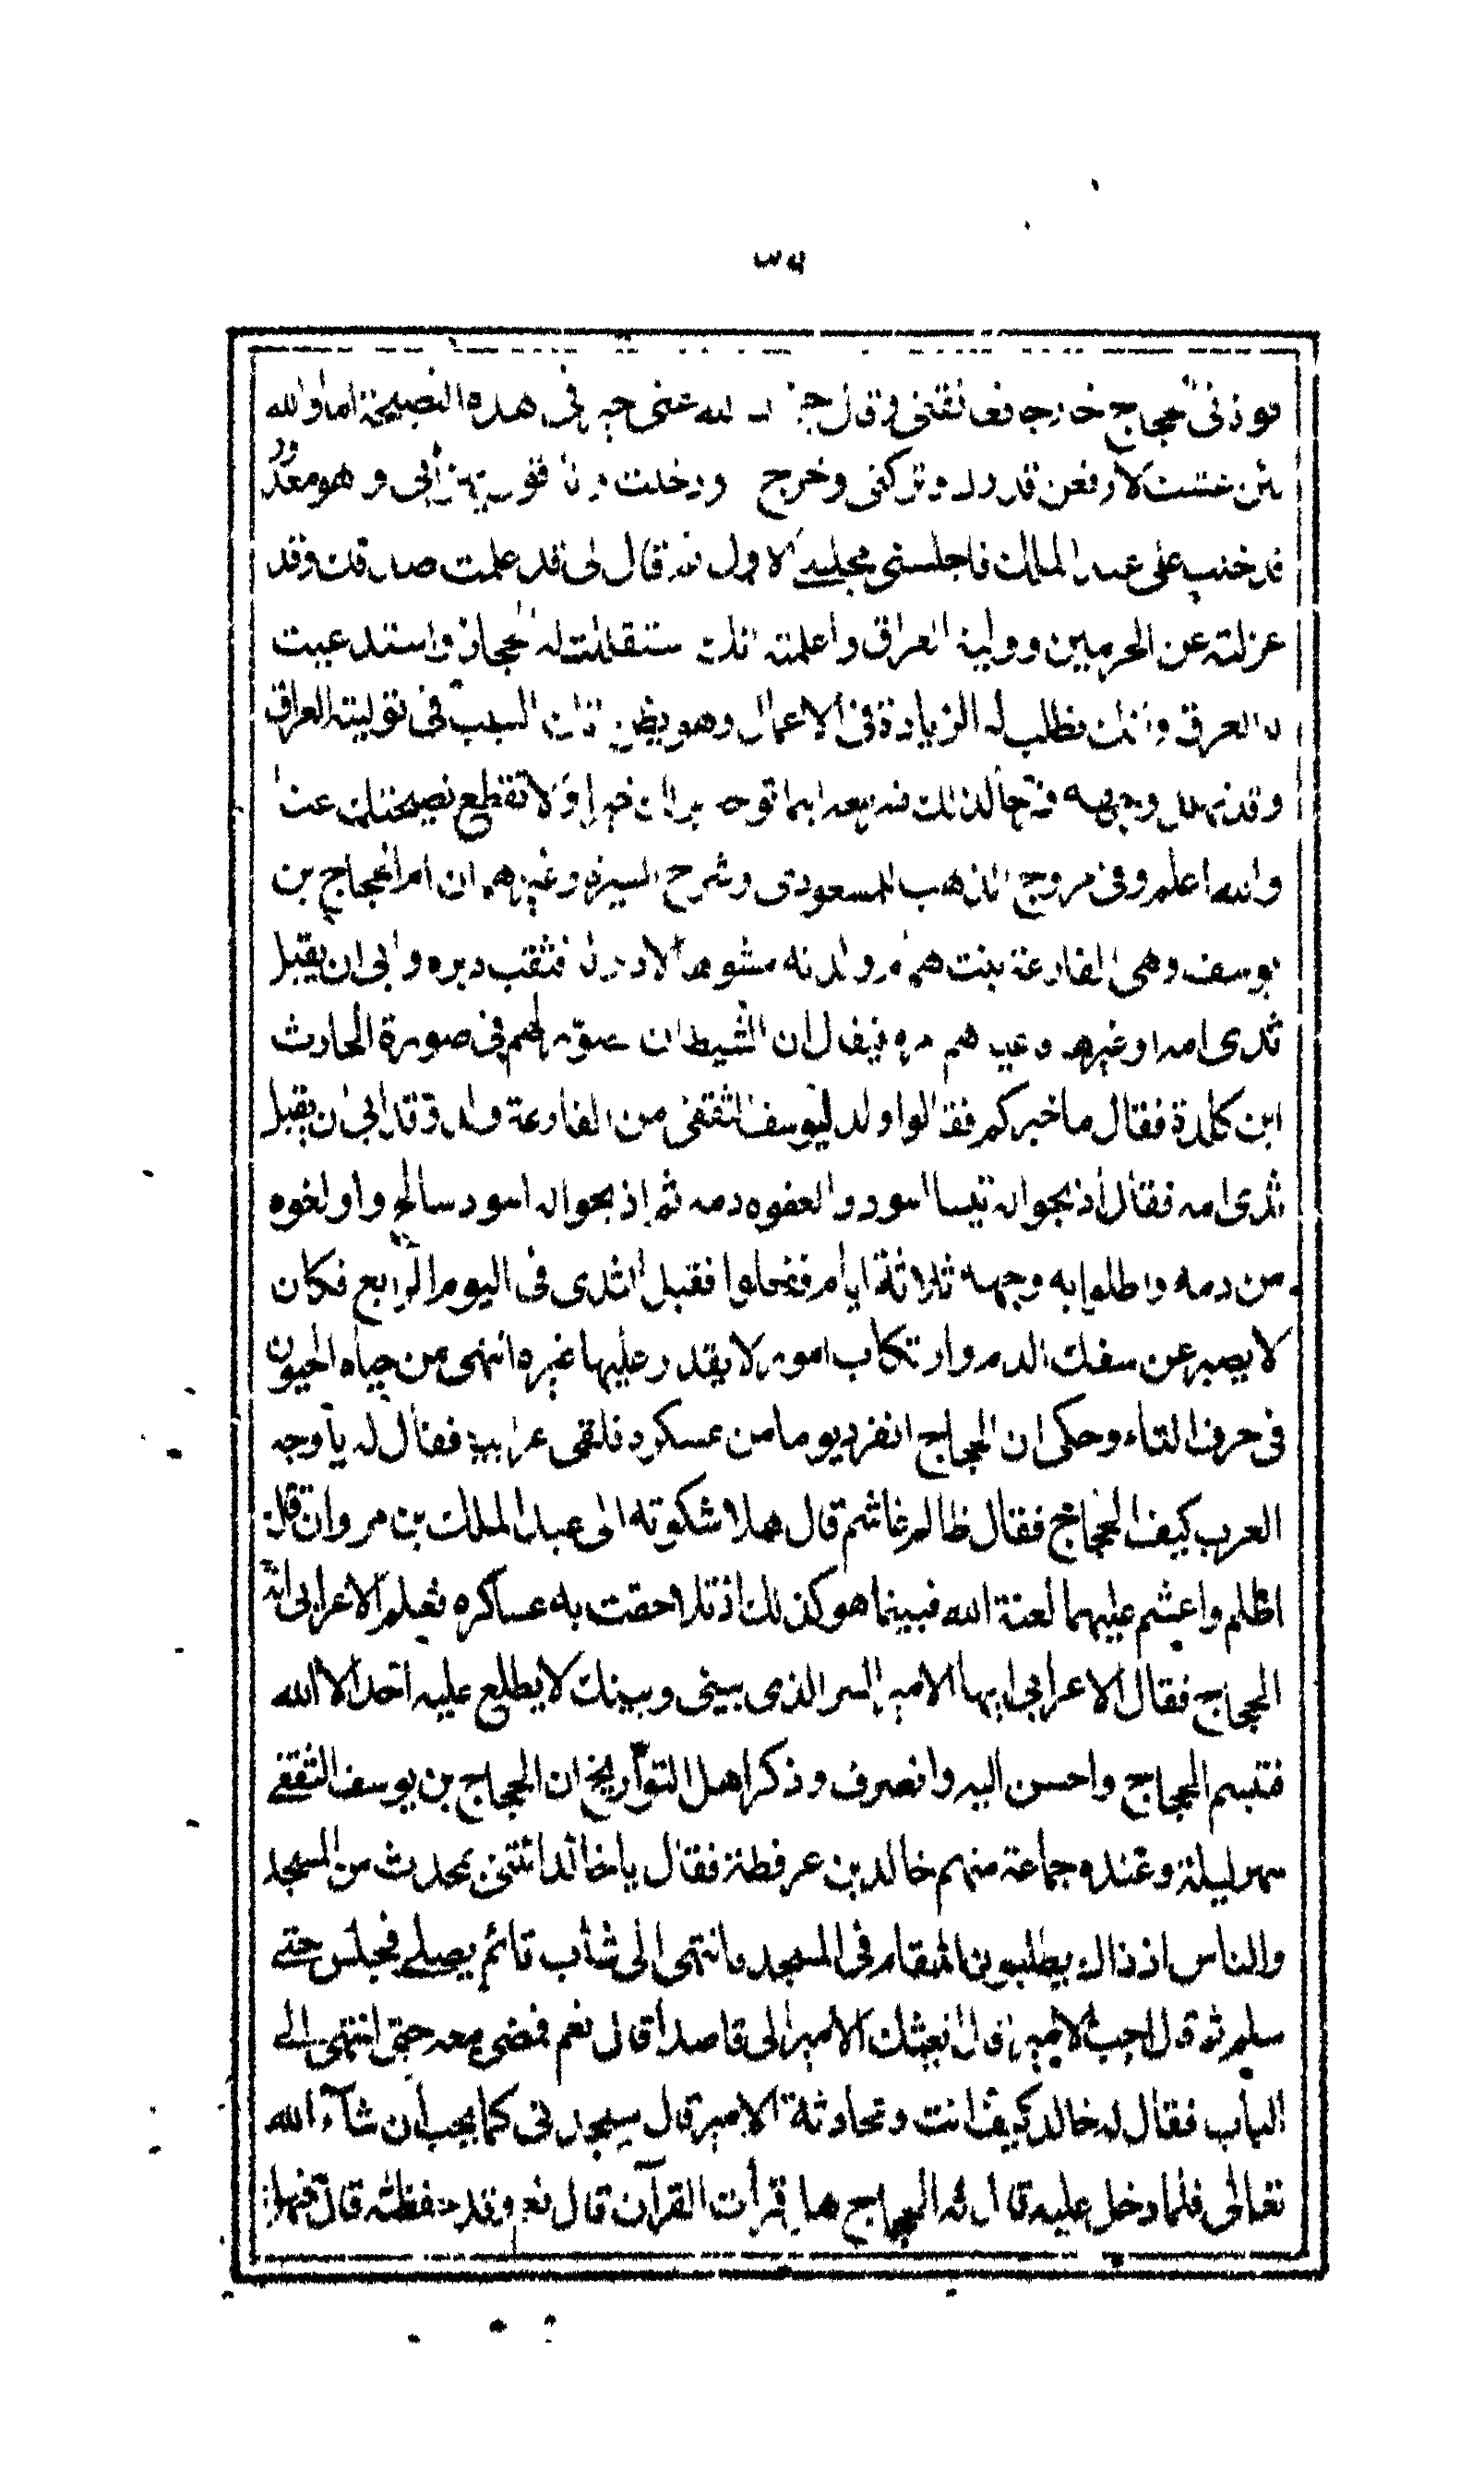 حجاج خارجا فعانقنى وقال الله عنى خيرا فى هذه النصيحة اما والله
لئن عشت لارفعن قدرك وتركنى وخرج ودخلت وهو معذور
على عبد الملك فاجلسنى مجلسى الاول قال لى قد علمت صدقك وقد
عزلته عن الحرمين ووليته العراق واعلمته انك ستقللت له الحجاز واستدعيت
له العراق وانك تطلب له الزيادة فى الاعمال وهو يظن انك السبب فى توليته العراق
وقد تهلل وجهه فرحا لذلك ولا تقطع نصيحتك عنا
والله اعلم وفى مروج الذهب للمسعودى وشرح السيرة وغيرهم ان ام الحجاج بن
يوسف وهى الفارعة بنت همام ولدته مشوها لا دبر له فثقب دبره وابى ان يقبل
ثدى امه او غيرها وعيب هم مره فيقال ان الشيطان صور لهم فى صورة الحارث
ابن كلدة فقال ما خبركم فقالوا ولد ليوسف الثقفى من الفارعة ولد وقد ابى ان يقبل
ثدى امه فقال اذبحوا له تيسا اسود والعقوه دمه ثم اذبحوا له اسود سالخ واولغوه
من دمه واطلوا به وجهه ثلاثة ايام ففعلوا فقبل الثدى فى اليوم الرابع فكان
لا يصبر عن سفك الدم وارتكاب امور لا يقدر عليها غيره انتهى من حياه الحيون
فى حرف التاء وحكى ان الحجاج انفرد يوما من عسكره فلقى عرابيا فقال له يا وجه
العرب كيف الحجاج فقال ظالم غاشم قال هلا شكوته الى عبد الملك بن مروان قال
اظلم واغشم عليهما لعنة الله فبينما هو كذلك اذ تلاحقت به عساكره فعلم الاعرابى انه
الحجاج فقال الاعرابى ايها الامير السر الذى بينى وبينك لا يطلع عليه احد الا الله
فتبسم الحجاج واحسن اليه وانصرف وذكر اهل التواريخ ان الحجاج بن يوسف الثقفى
سهر ليلة وعنده جماعة منهم خالد بن عرفطة فقال يا خالد ائتنى بمحدث من المسجد
والناس اذ ذاك يطلبون المقام فى المسجد فانتهى الى شاب قائم يصلى فجلس حتى
سلم ثم قال اجب الامير قال ابعثك الامير الى قاصدا قال نعم فمضى معه حتى انتهى الى
الباب فقال له خالد كيف انت ومحادثة الامير قال سيجدنى كما يحب ان شآء الله
تعالى فلما دخل عليه قال له الحجاج هل قرات القرآن قال نعم وقد حفظته قال فهل